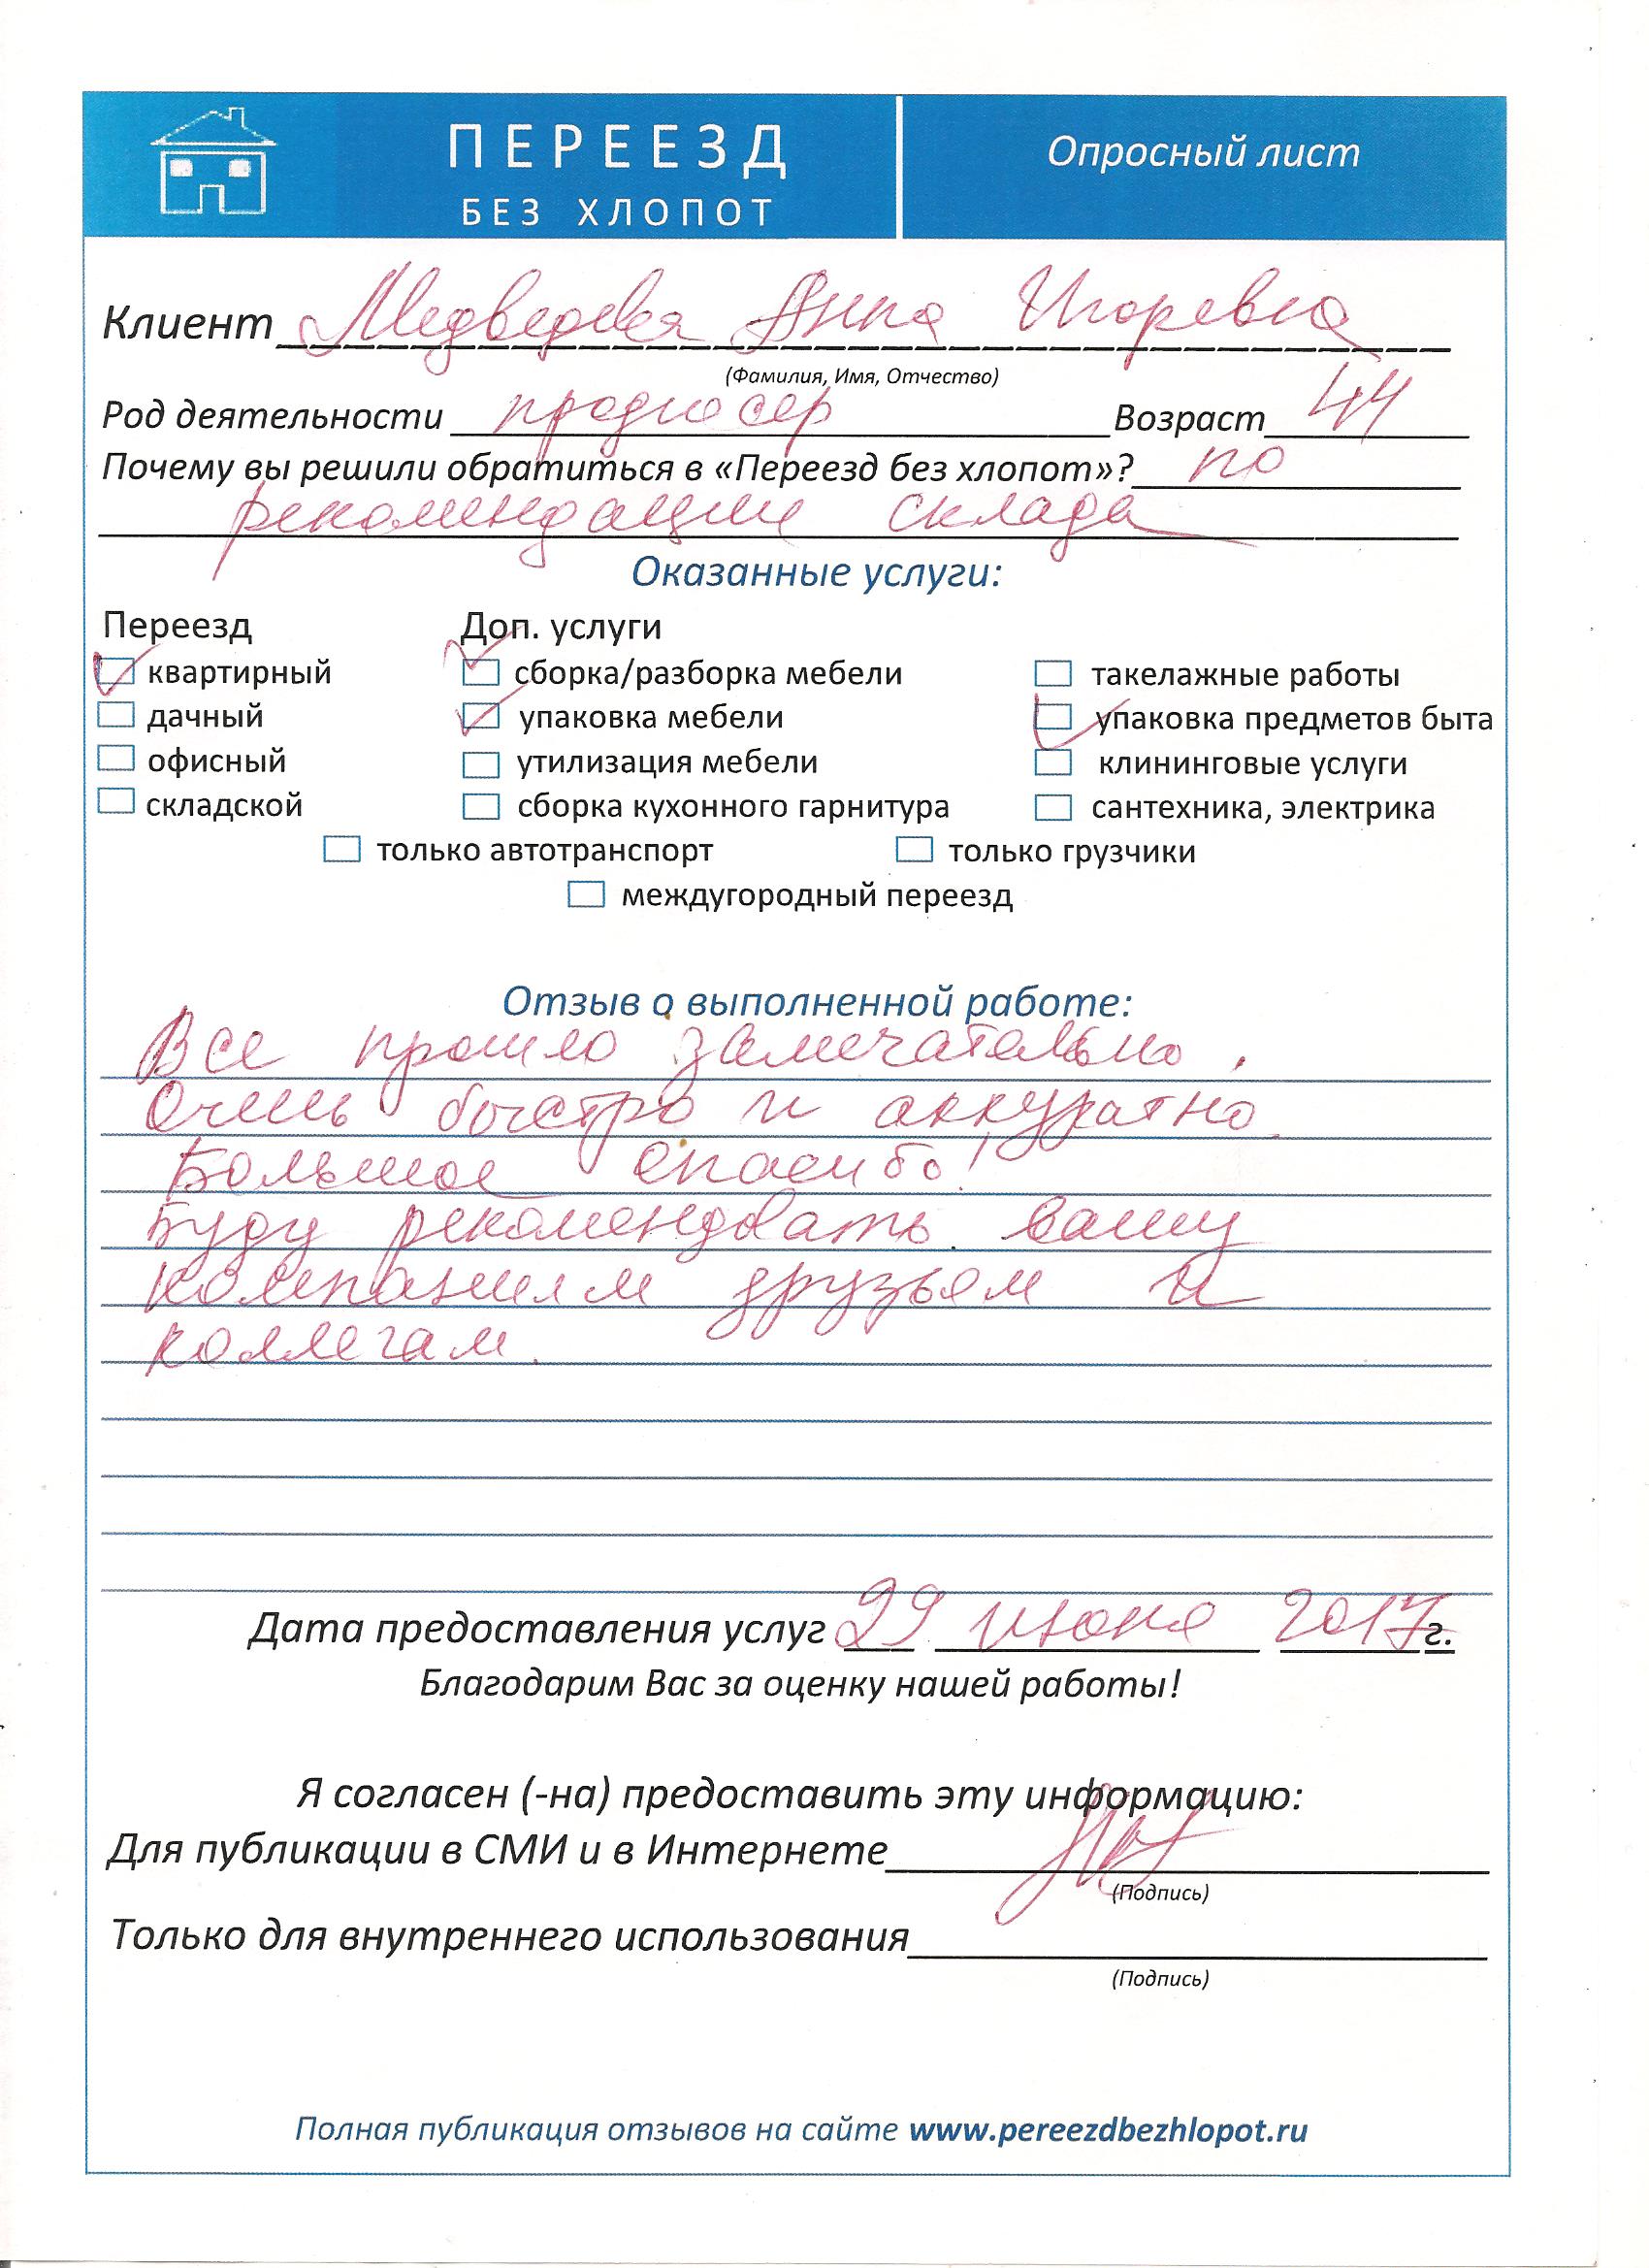 ПЕРЕЕЗД
БЕЗ ХЛОПОТ
Опросный лист
Клиент Медведева Анна Игоревна
(Фамилия, Имя, Отчество)
Род деятельности продюсер Возраст 44
Почему вы решили обратиться в «Переезд без хлопот»? по
рекомендации склада
Оказанные услуги:
Переезд Доп. услуги
квартирный сборка/разборка мебели такелажные работы
дачный упаковка мебели упаковка предметов быта
офисный утилизация мебели клининговые услуги
складской сборка кухонного гарнитура сантехника, электрика
только автотранспорт только грузчики
междугородный переезд
Отзыв о выполненной работе:
Все прошло замечательно.
Очень быстро и аккуратно.
Большое спасибо!
Буду рекомендовать вашу
компаниям друзьям и
коллегам.
Дата предоставления услуг 29 июня 2017 г.
Благодарим Вас за оценку нашей работы!
Я согласен (-на) предоставить эту информацию:
Для публикации в СМИ и в Интернете
(Подпись)
Только для внутреннего использования
(Подпись)
Полная публикация отзывов на сайте www.pereezdbezhlopot.ru